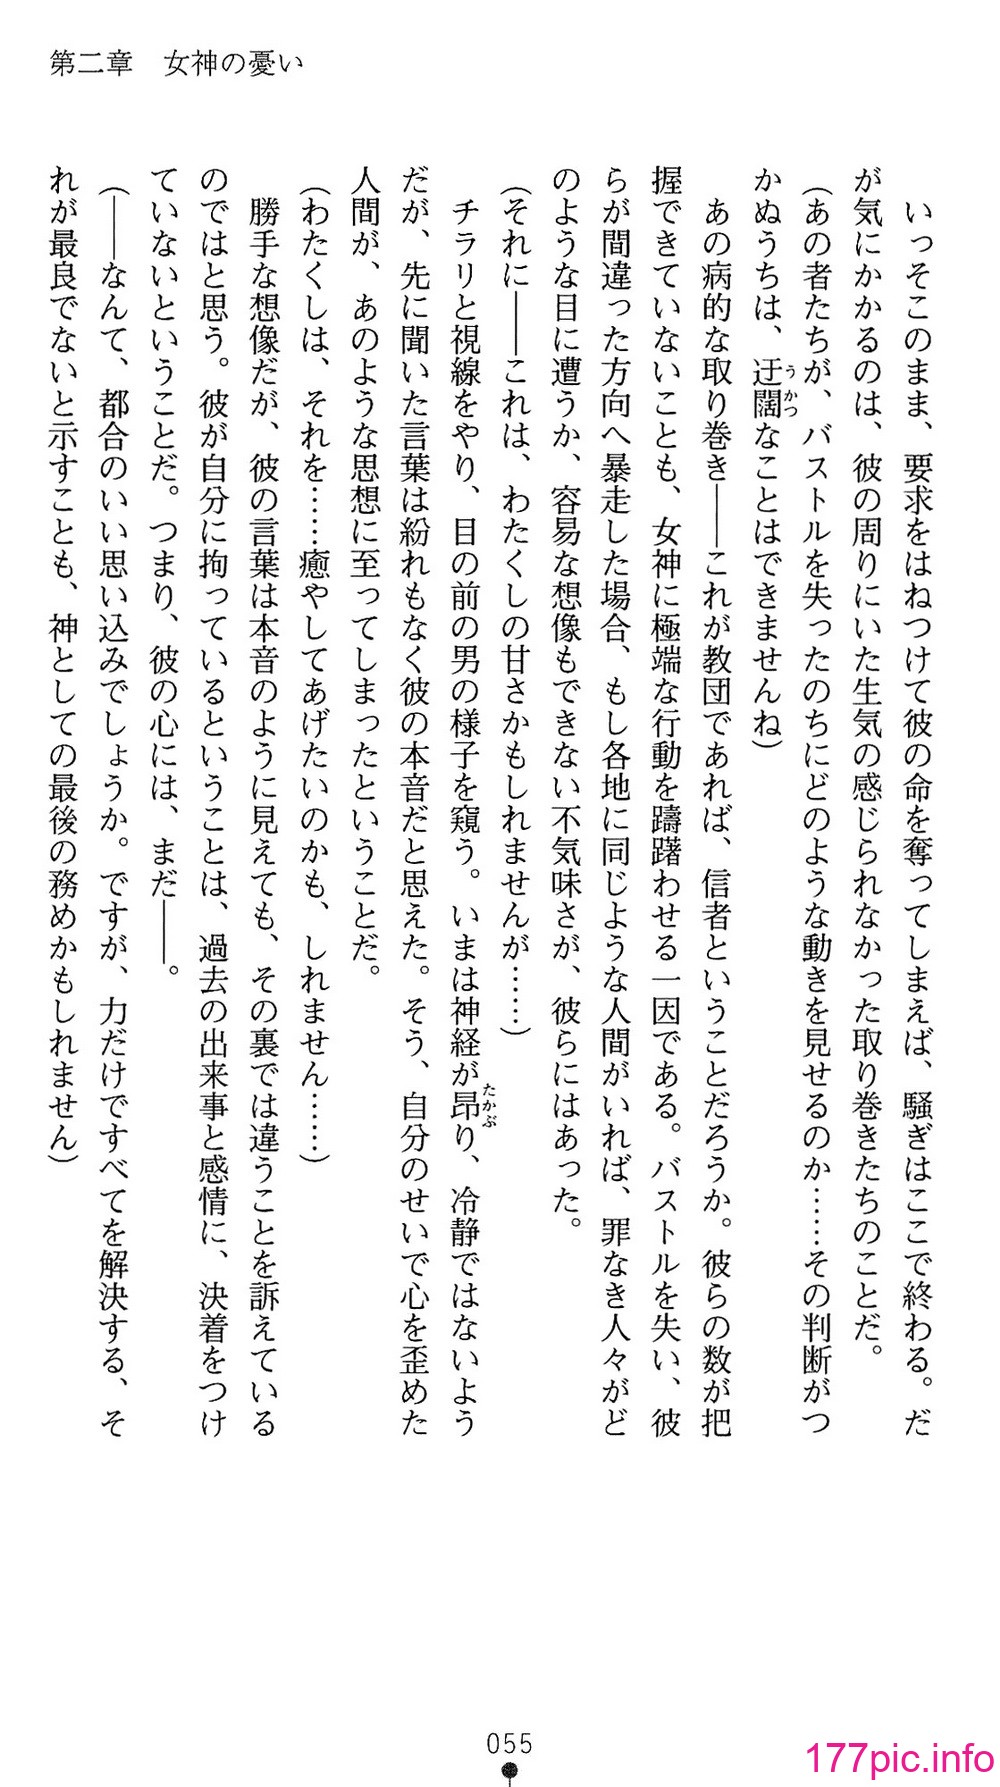 第二章　女神の憂い
　いっそこのまま、要求をはねつけて彼の命を奪ってしまえば、騒ぎはここで終わる。だ
が気にかかるのは、彼の周りにいた生気の感じられなかった取り巻きたちのことだ。
（あの者たちが、バストルを失ったのちにどのような動きを見せるのか……その判断がつ
かぬうちは、迂闊なことはできませんね）
うかつ
　あの病的な取り巻き――これが教団であれば、信者ということだろうか。彼らの数が把
握できていないことも、女神に極端な行動を躊躇わせる一因である。バストルを失い、彼
らが間違った方向へ暴走した場合、もし各地に同じような人間がいれば、罪なき人々がど
のような目に遭うか、容易な想像もできない不気味さが、彼らにはあった。
（それに――これは、わたくしの甘さかもしれませんが……）
　チラリと視線をやり、目の前の男の様子を窺う。いまは神経が昂り、冷静ではないよう
たかぶ
だが、先に聞いた言葉は紛れもなく彼の本音だと思えた。そう、自分のせいで心を歪めた
人間が、あのような思想に至ってしまったということだ。
（わたくしは、それを……癒やしてあげたいのかも、しれません……）
　勝手な想像だが、彼の言葉は本音のように見えても、その裏では違うことを訴えている
のではと思う。彼が自分に拘っているということは、過去の出来事と感情に、決着をつけ
ていないということだ。つまり、彼の心には、まだ――。
（――なんて、都合のいい思い込みでしょうか。ですが、力だけですべてを解決する、そ
れが最良でないと示すことも、神としての最後の務めかもしれません）
055
177pic.info